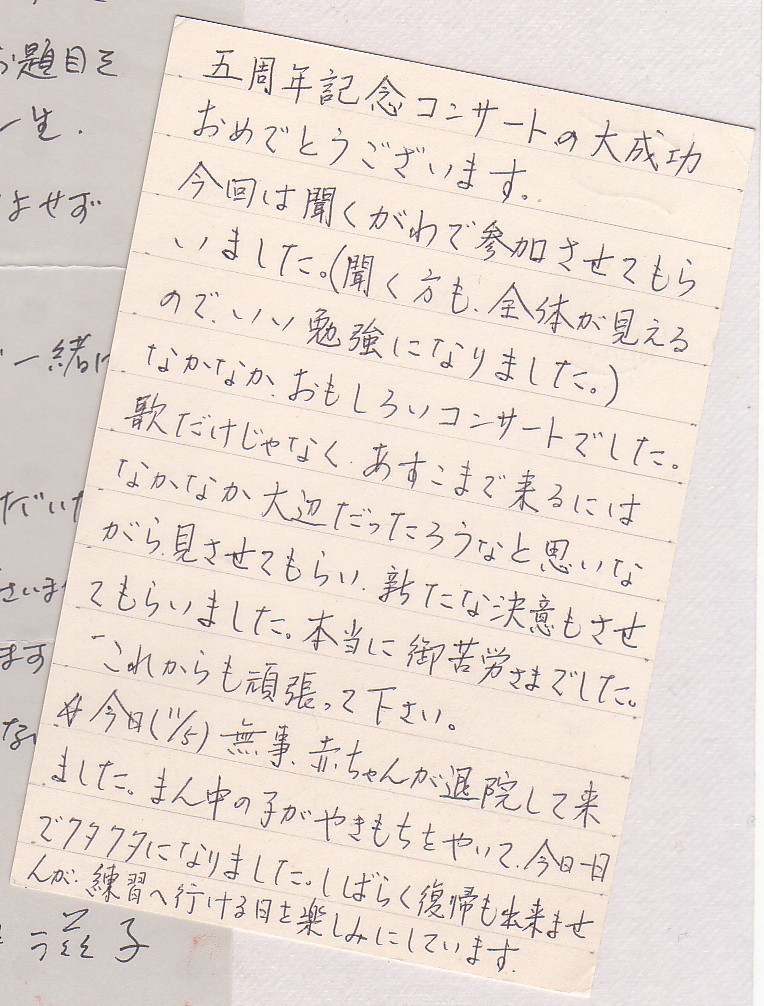 五周年記念コンサートの大成功
おめでとうございます。
今回は聞くがわで参加させてもら
いました。(聞く方も、全体が見える
ので、いい勉強になりました。)
なかなか、おもしろいコンサートでした。
歌だけじゃなく、あすこまで来るには
なかなか大辺だったろうなと思いな
がら、見させてもらい、新たな決意もさせ
てもらいました。本当に御苦労さまでした。
これからも頑張って下さい。
☆今日(11/5)無事、赤ちゃんが退院して来
ました。まん中の子がやきもちをやいて、今日一日
でクタクタになりました。しばらく復帰も出来ませ
んが、練習へ行ける日を楽しみにしています。
お題目を
一生.
ませず
一緒に
だいた
ざいま
ます
な
子